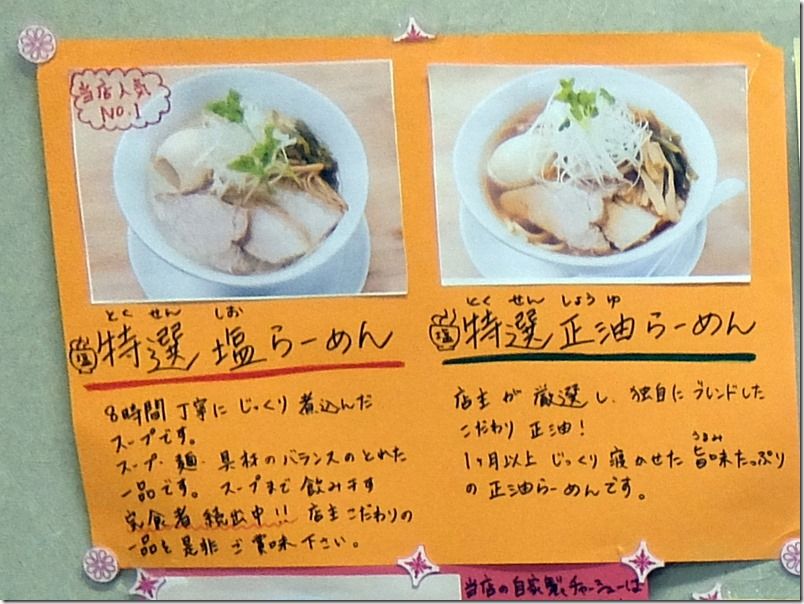 当店人気
NO.1
とくせん しお
塩 特選 塩らーめん
8時間 丁寧に じっくり 煮込んだ
スープです。
スープ・麺・具材のバランスのとれた
一品です。 スープまで 飲みほす
完食者 続出中!! 店主こだわりの
一品を是非 ご賞味下さい。
とく せん しょうゆ
塩 特選 正油らーめん
店主が 厳選し、独自にブレンドした
こだわり 正油!
うまみ
1ヶ月以上 じっくり 寝かせた 旨味たっぷり
の 正油らーめんです。
当店の自家製チャーシューは